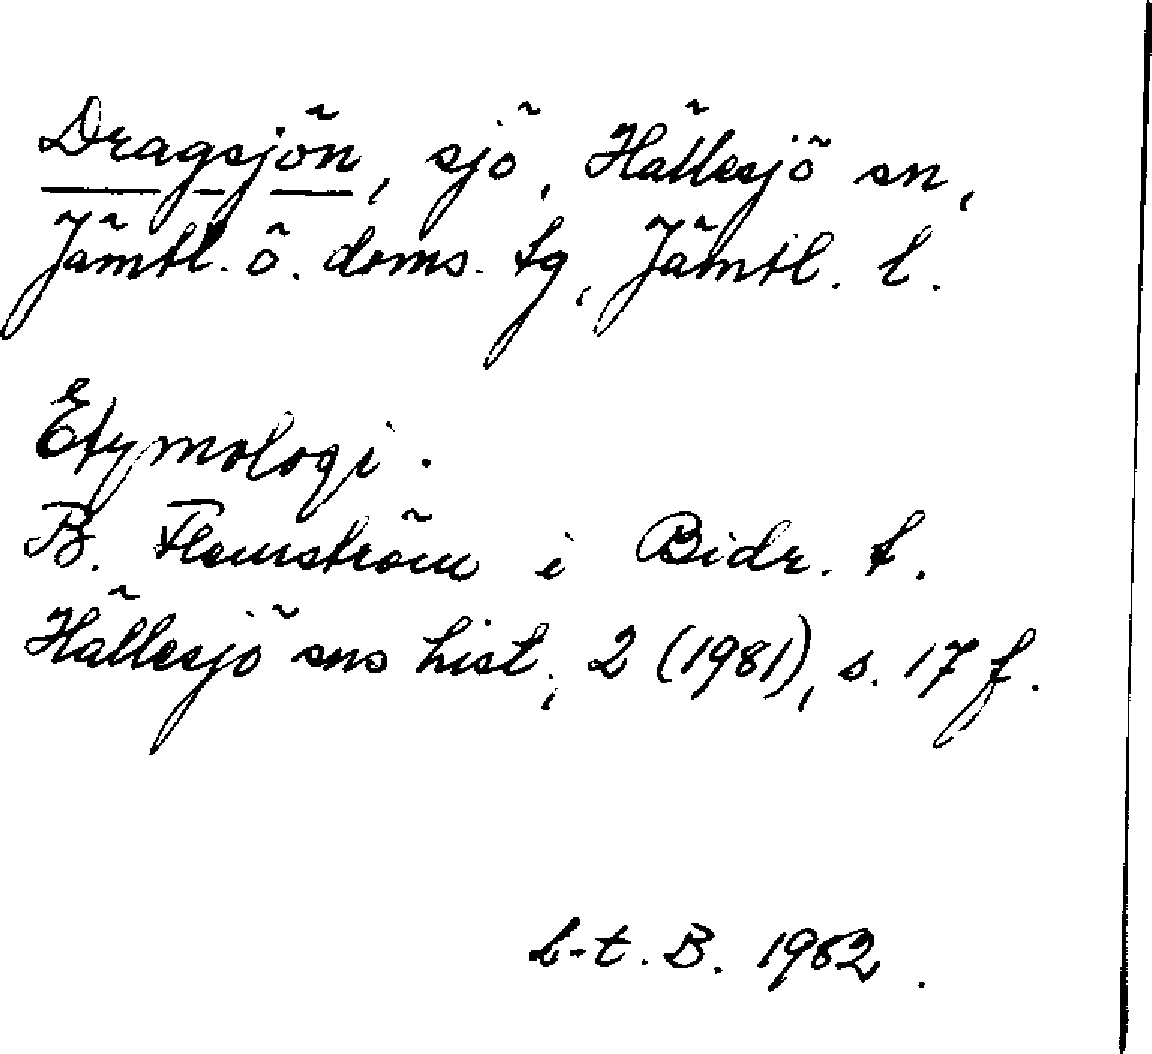 Dragsjön, sjö, Hällesjö sn,
Jämtl. ö. doms. tg, Jämtl. l.
Etymologi.
B. Flemström i Bidr. t.
Hällesjö sns hist., 2 (1981), s. 17 f.
B. 1982.